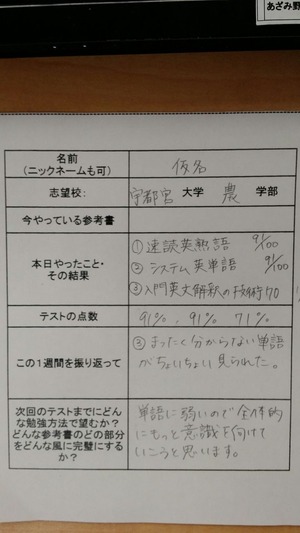 あざみ野
名前
（ニックネームも可）
仮名
志望校：
宇都宮 大学 農 学部
今やっている参考書
本日やったこと・
その結果
① 速読英熟語 91/100
② システム英単語 91/100
③ 入門英文解釈の技術70
テストの点数
91%、91% 71%
この１週間を振り返って
③ まったく分からない単語
がちょいちょい見られた。
次回のテストまでにどん
な勉強方法で望むか？
どんな参考書のどの部分
をどんな風に完璧にする
か？
単語に弱いので全体的
にもっと意識を向けて
いこうと思います。